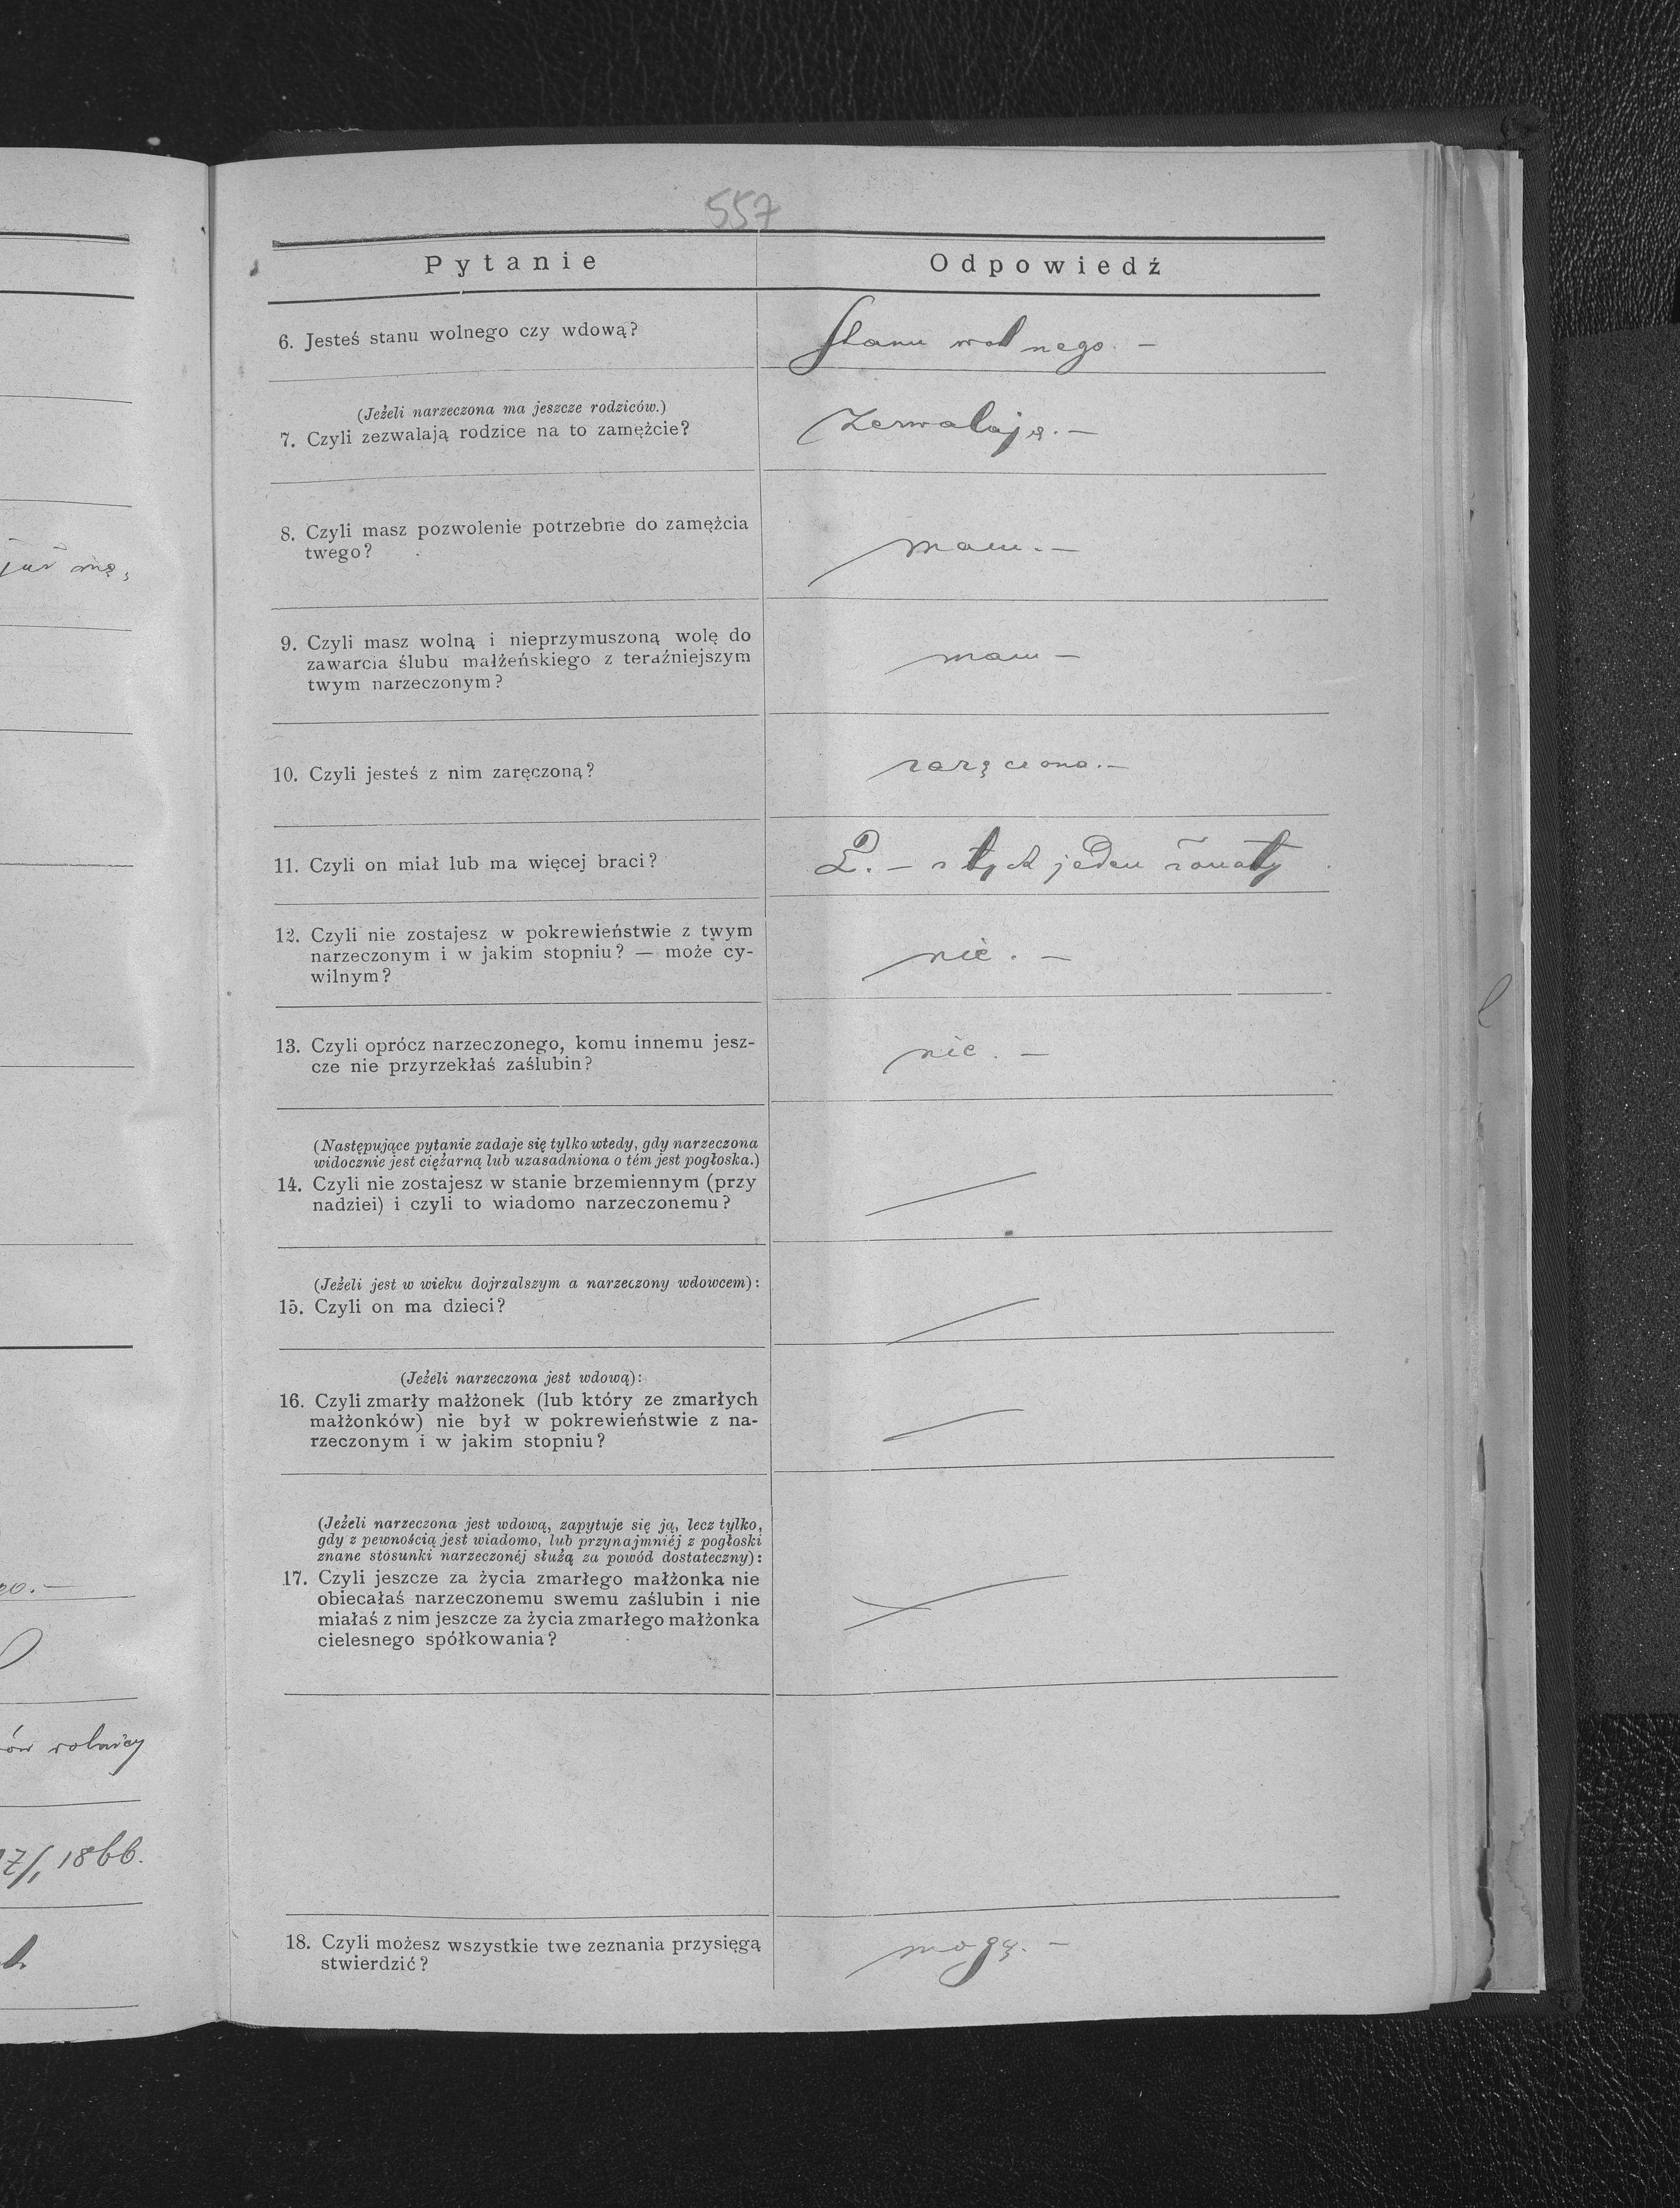 557
Pytanie
Odpowiedź
6. Jesteś stanu wolnego czy wdową?
Stanu wolnego. —
(Jeżeli narzeczona ma jeszcze rodziców.)
7. Czyli zezwalają rodzice na to zamężcie?
Zezwalają. —
8. Czyli masz pozwolenie potrzebne do zamężcia
twego?
mam. —
9. Czyli masz wolną i nieprzymuszoną wolę do
zawarcia ślubu małżeńskiego z teraźniejszym
twym narzeczonym?
mam —
10. Czyli jesteś z nim zaręczoną?
zaręczona. —
11. Czyli on miał lub ma więcej braci?
2. — z tych jeden żonaty
12. Czyli nie zostajesz w pokrewieństwie z twym
narzeczonym i w jakim stopniu? — może cy-
wilnym?
nie. —
13. Czyli oprócz narzeczonego, komu innemu jesz-
cze nie przyrzekłaś zaślubin?
nie. —
(Następujące pytanie zadaje się tylko wtedy, gdy narzeczona
widocznie jest ciężarną lub uzasadniona o tém jest pogłoska.)
14. Czyli nie zostajesz w stanie brzemiennym (przy
nadziei) i czyli to wiadomo narzeczonemu?
(Jeżeli jest w wieku dojrzalszym a narzeczony wdowcem):
15. Czyli on ma dzieci?
(Jeżeli narzeczona jest wdową):
16. Czyli zmarły małżonek (lub który ze zmarłych
małżonków) nie był w pokrewieństwie z na-
rzeczonym i w jakim stopniu?
(Jeżeli narzeczona jest wdową, zapytuje się ją, lecz tylko,
gdy z pewnością jest wiadomo, lub przynajmniéj z pogłoski
znane stosunki narzeczonéj służą za powód dostateczny):
17. Czyli jeszcze za życia zmarłego małżonka nie
obiecałaś narzeczonemu swemu zaślubin i nie
miałaś z nim jeszcze za życia zmarłego małżonka
cielesnego spółkowania?
18. Czyli możesz wszystkie twe zeznania przysięgą
stwierdzić?
mogę. —
1866.